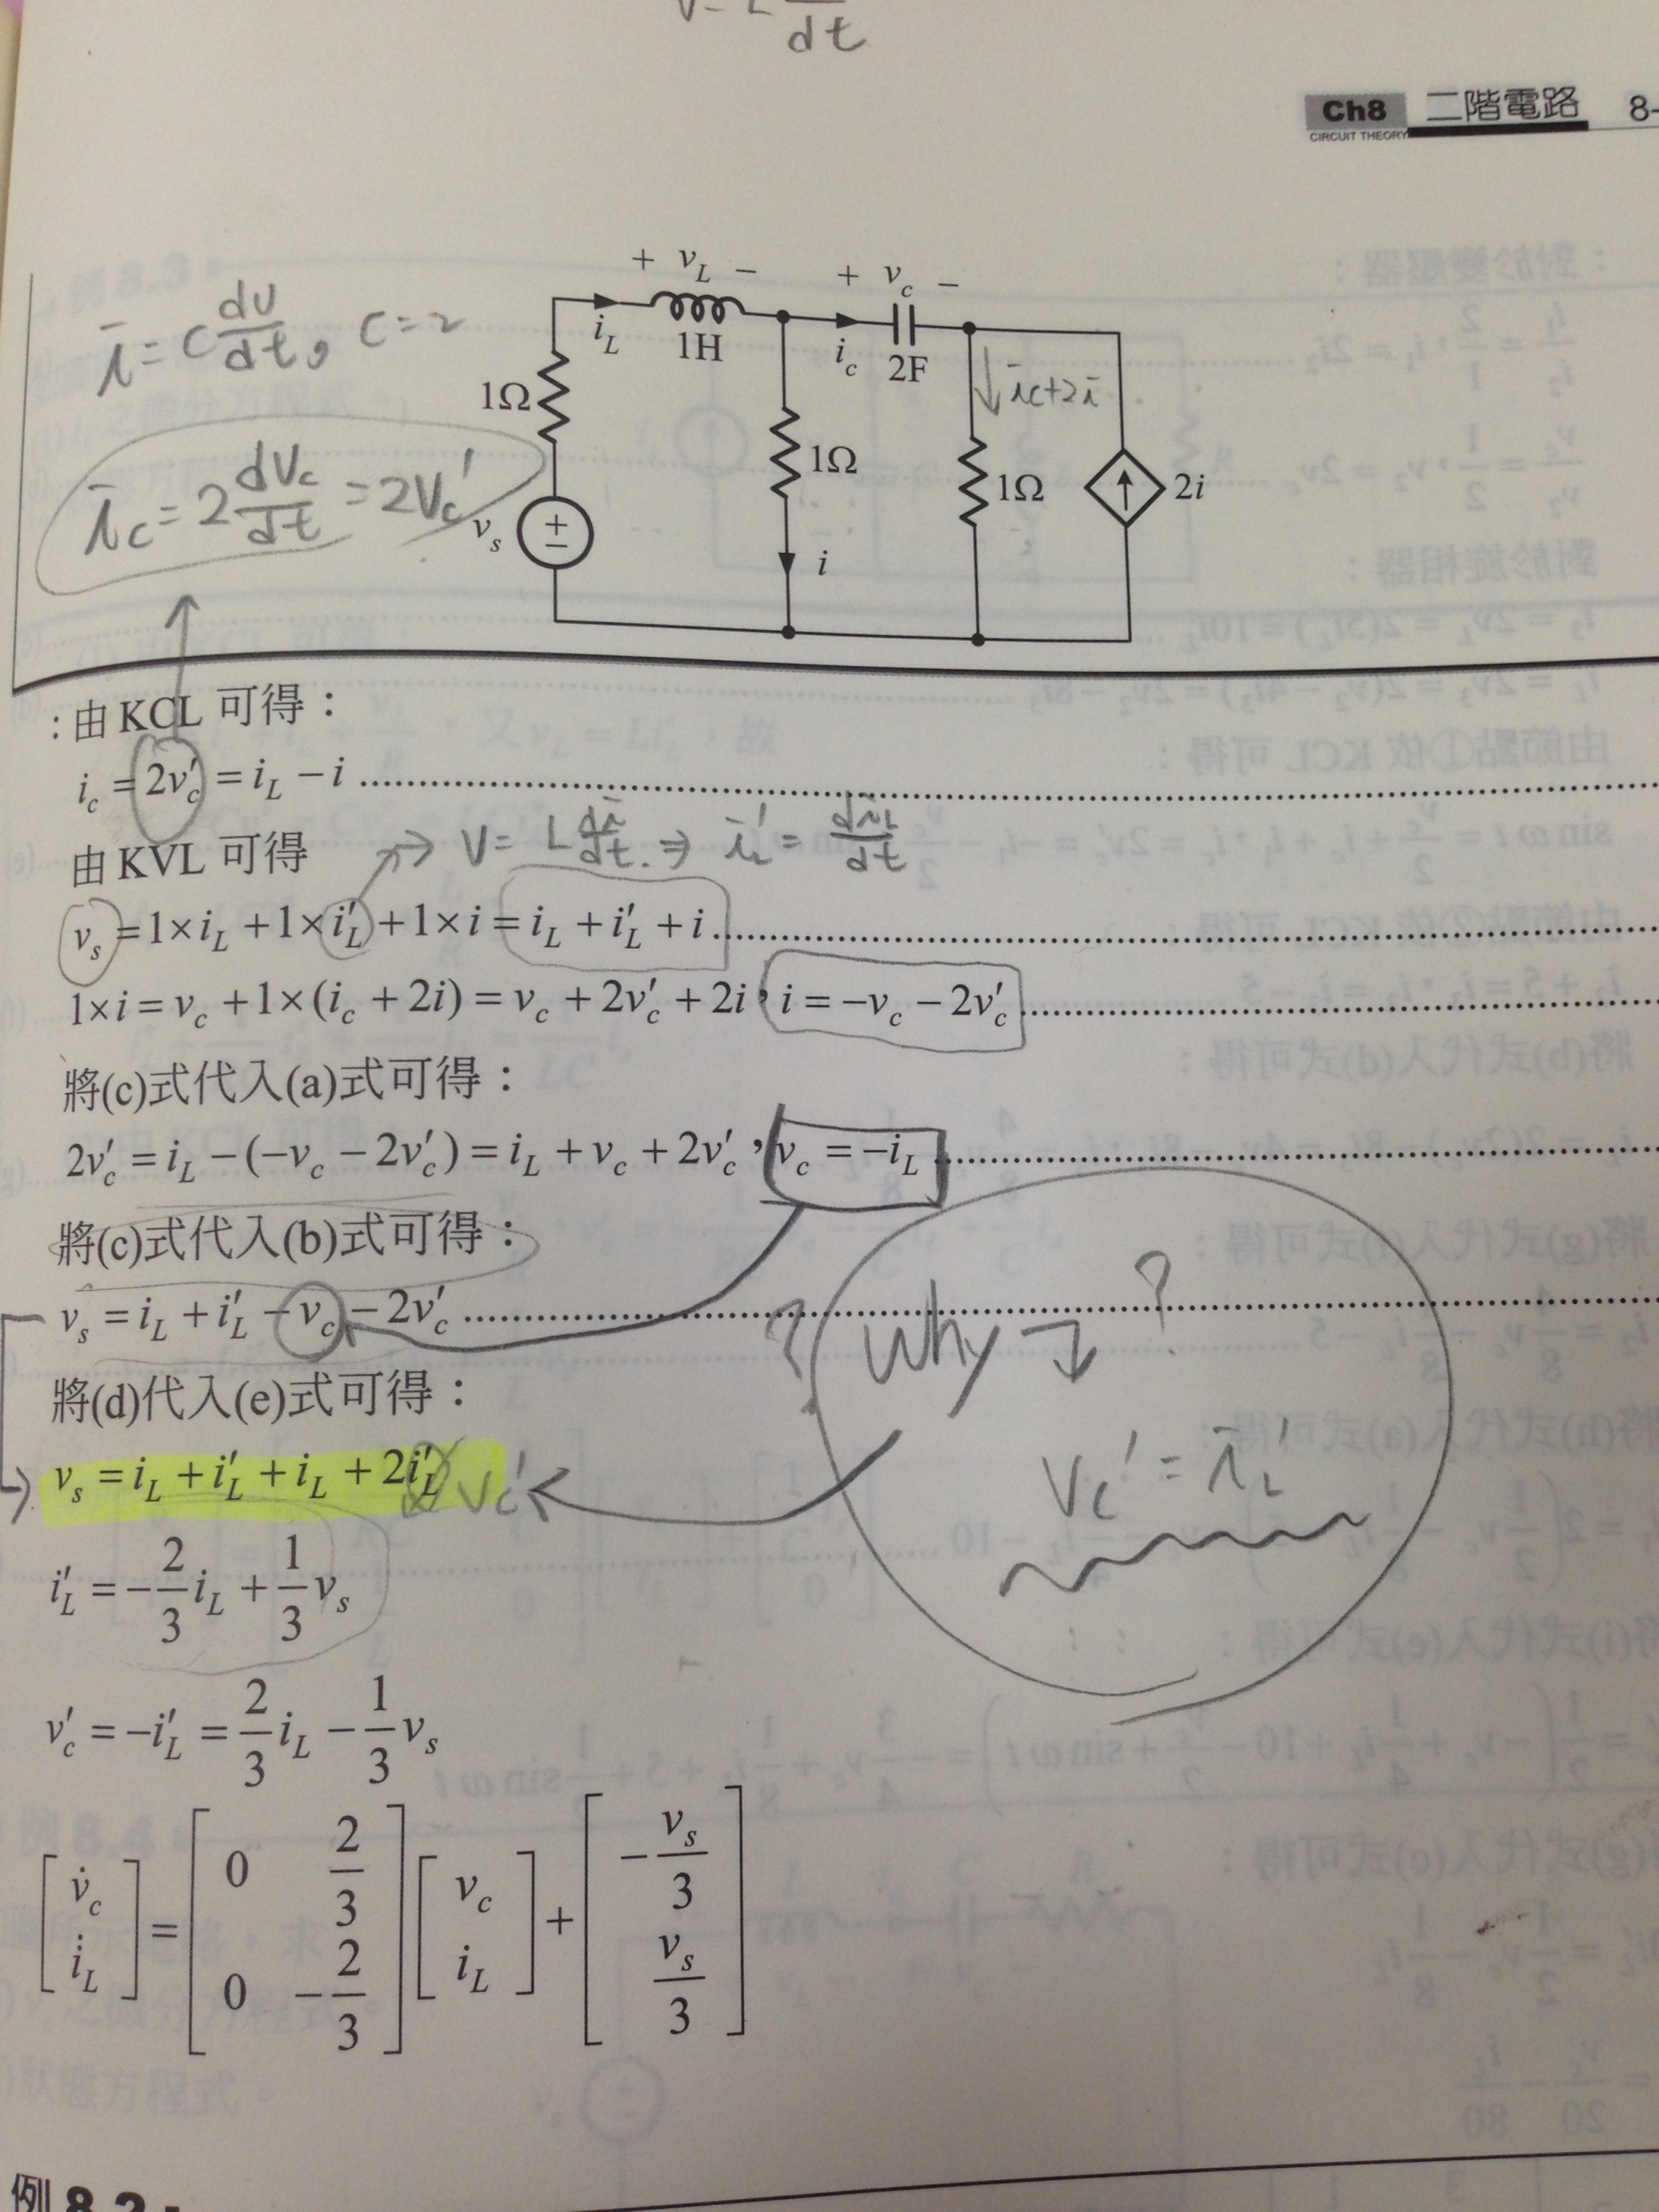 V= L
dt
Ch8 二階電路 8-
CIRCUIT THEORY
i = C dv/dt, C=2
ic = 2 dVc/dt = 2Vc'
+ vL −
+ vc −
iL
1H
ic
2F
1Ω
ic+2i
1Ω
1Ω
2i
vs
+
−
i
:由 KCL 可得：
ic = 2v′c = iL − i
由 KVL 可得
→ V = L di/dt. ⇒ iL' = diL/dt
vs = 1×iL + 1×i′L + 1×i = iL + i′L + i
1×i = vc + 1×(ic + 2i) = vc + 2v′c + 2i，i = −vc − 2v′c
將(c)式代入(a)式可得：
2v′c = iL − (−vc − 2v′c) = iL + vc + 2v′c，vc = −iL
將(c)式代入(b)式可得：
vs = iL + i′L − vc − 2v′c
? Why ?
將(d)代入(e)式可得：
vs = iL + i′L + iL + 2i′L Vc'
Vc' = iL'
i′L = −2/3 iL + 1/3 vs
v′c = −i′L = 2/3 iL − 1/3 vs
[v̇c i̇L] = [0 2/3 0 −2/3] [vc iL] + [−vs/3 vs/3]
例 8.2：